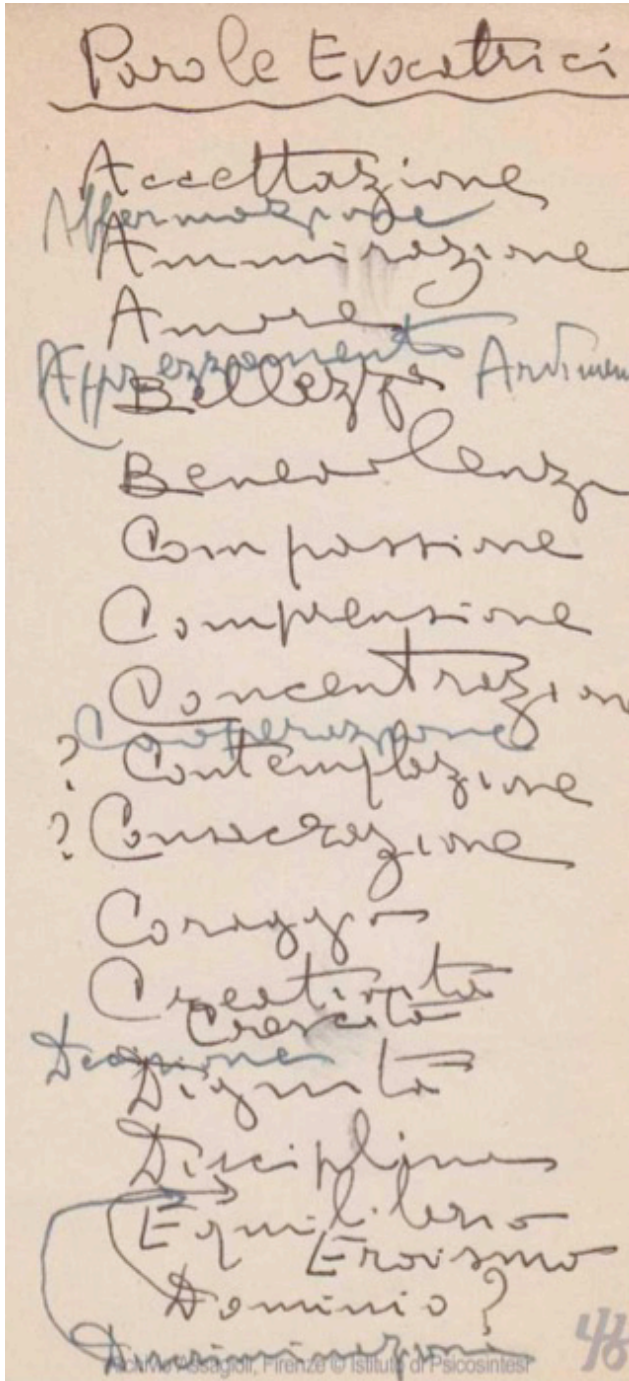 Parole Evocatrici
Accettazione
Affermazione
Ammirazione
Amore
Apprezzamento Ardimen
Bellezza
Benevolenza
Compassione
Comprensione
Concentrazion
Cooperazione
? Contemplazione
? Consacrazione
Coraggio
Creatività
Crescita
Decisione
Dignità
Disciplina
Equilibrio
Eroismo
Dominio?
Discriminazione
Archivio Assagioli, Firenze © Istituto di Psicosintesi